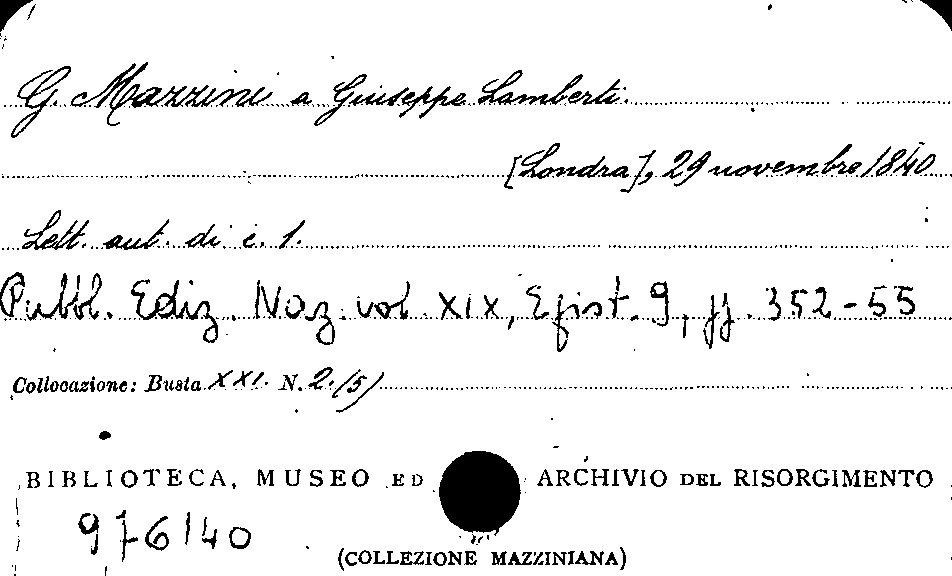 G. Mazzini a Giuseppe Lamberti.
[Londra], 29 novembre 1840
Lett. aut. di c. 1.
Pubbl. Ediz. Naz. vol. XIX, Epist. 9, pp. 352-55
Collocazione: Busta XXI. N. 2.(5)
BIBLIOTECA, MUSEO ED ARCHIVIO DEL RISORGIMENTO
976/40
(COLLEZIONE MAZZINIANA)